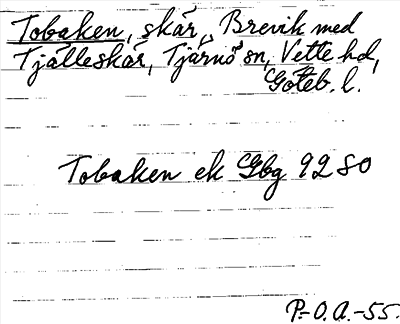 Tobaken, skär, Brevik med
Tjälleskär, Tjärnö sn, Vette hd,
Göteb. l.
Tobaken ek Gbg 9280
P.-O.A.-55.